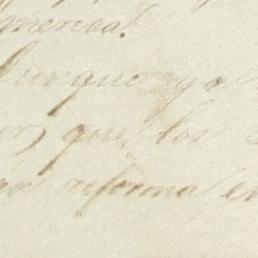 merica.
Aunque ya
que los
reforma en